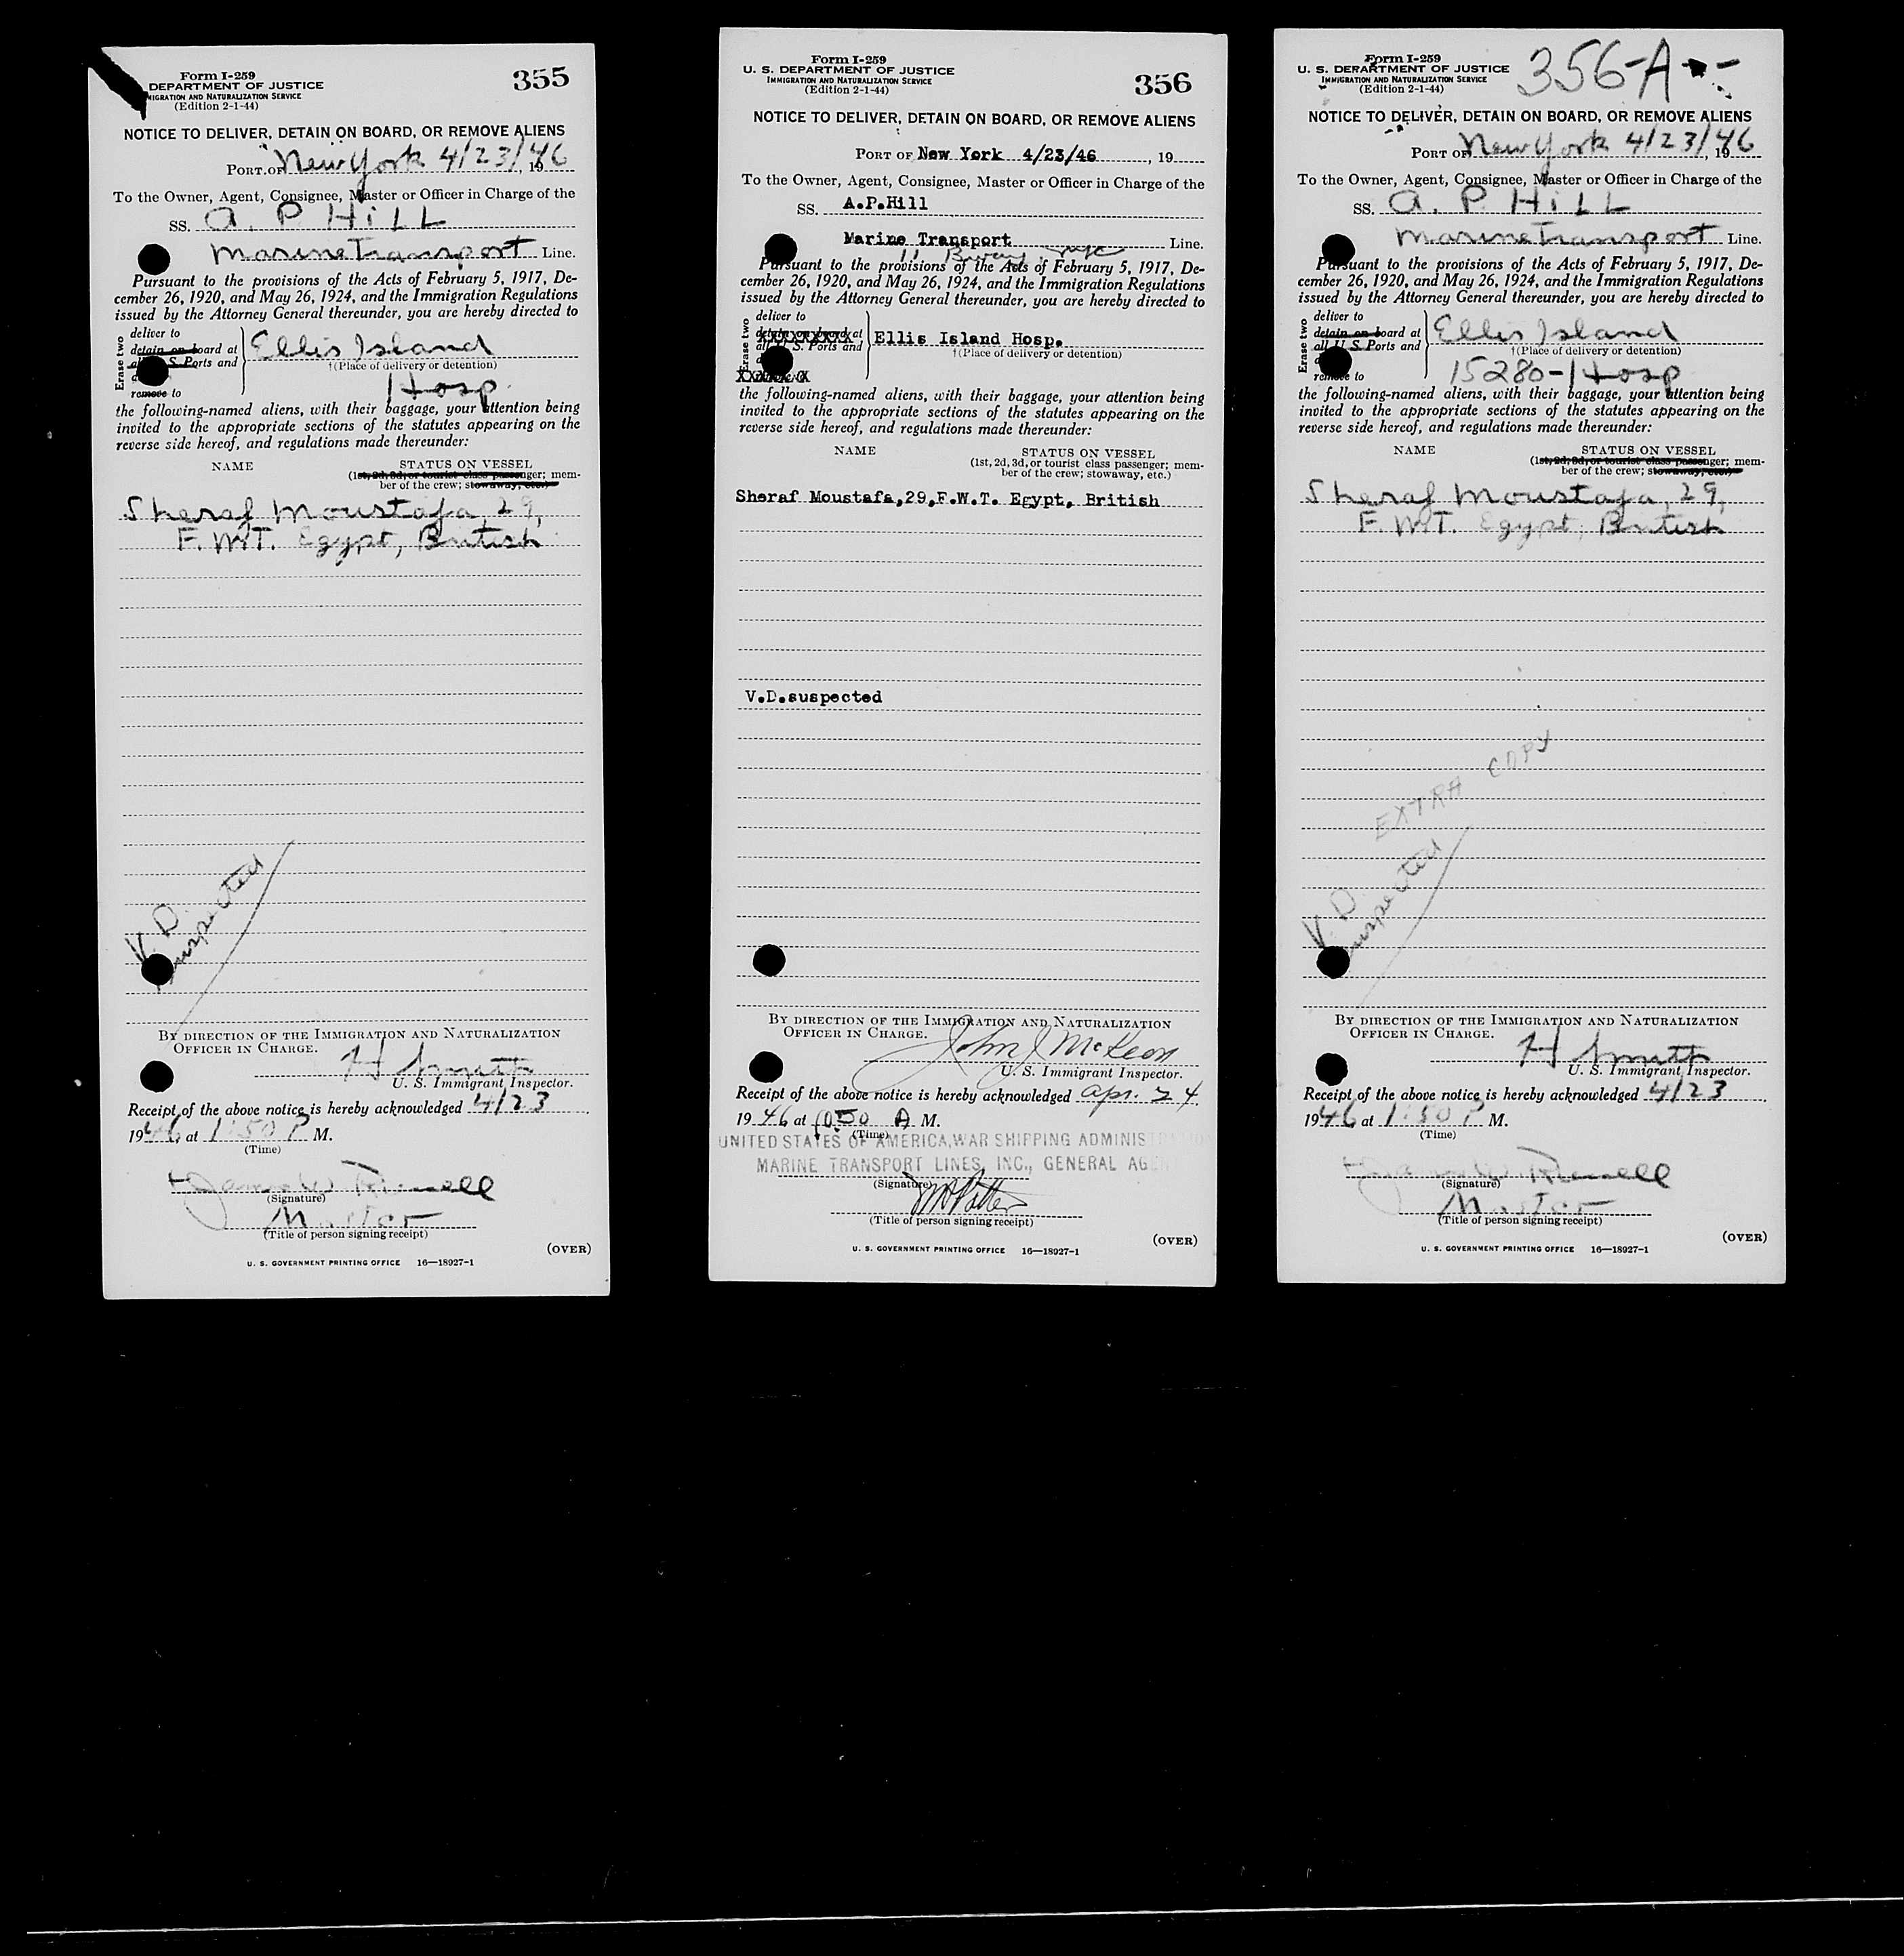 Form I-259
DEPARTMENT OF JUSTICE
IMMIGRATION AND NATURALIZATION SERVICE
(Edition 2-1-44)
355
NOTICE TO DELIVER, DETAIN ON BOARD, OR REMOVE ALIENS
PORT OF New York 4/23/46, 19
To the Owner, Agent, Consignee, Master or Officer in Charge of the
SS. A. P HILL
Marine Transport Line.
Pursuant to the provisions of the Acts of February 5, 1917, De-
cember 26, 1920, and May 26, 1924, and the Immigration Regulations
issued by the Attorney General thereunder, you are hereby directed to
Erase two
deliver to
detain on board at
all U. S. Ports and
remove to
Ellis Island
†(Place of delivery or detention)
Hosp.
the following-named aliens, with their baggage, your attention being
invited to the appropriate sections of the statutes appearing on the
reverse side hereof, and regulations made thereunder:
NAME STATUS ON VESSEL
(1st, 2d, 3d, or tourist class passenger; mem-
ber of the crew; stowaway, etc.)
Sheraf Moustafa, 29,
F.W.T. Egypt, British
V.D.
suspected
BY DIRECTION OF THE IMMIGRATION AND NATURALIZATION
OFFICER IN CHARGE.
H Smith
U. S. Immigrant Inspector.
Receipt of the above notice is hereby acknowledged 4/23
1946 at 1:50 P M.
(Time)
(Signature)
Master
(Title of person signing receipt)
(OVER)
U. S. GOVERNMENT PRINTING OFFICE 16—18927-1
Form I-259
U. S. DEPARTMENT OF JUSTICE
IMMIGRATION AND NATURALIZATION SERVICE
(Edition 2-1-44)
356
NOTICE TO DELIVER, DETAIN ON BOARD, OR REMOVE ALIENS
PORT OF New York 4/23/46, 19
To the Owner, Agent, Consignee, Master or Officer in Charge of the
SS. A.P.Hill
Marine Transport Line.
11 Bway NYC
Pursuant to the provisions of the Acts of February 5, 1917, De-
cember 26, 1920, and May 26, 1924, and the Immigration Regulations
issued by the Attorney General thereunder, you are hereby directed to
Erase two
deliver to
detain on board at
all U. S. Ports and
Ellis Island Hosp.
†(Place of delivery or detention)
the following-named aliens, with their baggage, your attention being
invited to the appropriate sections of the statutes appearing on the
reverse side hereof, and regulations made thereunder:
NAME STATUS ON VESSEL
(1st, 2d, 3d, or tourist class passenger; mem-
ber of the crew; stowaway, etc.)
Sheraf Moustafa,29,F.W.T. Egypt, British
V.D.suspected
BY DIRECTION OF THE IMMIGRATION AND NATURALIZATION
OFFICER IN CHARGE.
John J McKeon
U. S. Immigrant Inspector.
Receipt of the above notice is hereby acknowledged Apr. 24
1946 at 1050 A M.
(Time)
UNITED STATES OF AMERICA, WAR SHIPPING ADMINISTRATION
MARINE TRANSPORT LINES, INC., GENERAL AGENT
(Signature)
(Title of person signing receipt)
(OVER)
U. S. GOVERNMENT PRINTING OFFICE 16—18927-1
Form I-259
U. S. DEPARTMENT OF JUSTICE
IMMIGRATION AND NATURALIZATION SERVICE
(Edition 2-1-44)
356-A
NOTICE TO DELIVER, DETAIN ON BOARD, OR REMOVE ALIENS
PORT OF New York 4/23/46, 19
To the Owner, Agent, Consignee, Master or Officer in Charge of the
SS. A. P HILL
Marine Transport Line.
Pursuant to the provisions of the Acts of February 5, 1917, De-
cember 26, 1920, and May 26, 1924, and the Immigration Regulations
issued by the Attorney General thereunder, you are hereby directed to
Erase two
deliver to
detain on board at
all U. S. Ports and
remove to
Ellis Island
†(Place of delivery or detention)
15280-1 Hosp
the following-named aliens, with their baggage, your attention being
invited to the appropriate sections of the statutes appearing on the
reverse side hereof, and regulations made thereunder:
NAME STATUS ON VESSEL
(1st, 2d, 3d, or tourist class passenger; mem-
ber of the crew; stowaway, etc.)
Sheraf Moustafa, 29,
F.W.T. Egypt, British
EXTRA COPY
V.D
suspected
BY DIRECTION OF THE IMMIGRATION AND NATURALIZATION
OFFICER IN CHARGE.
H Smith
U. S. Immigrant Inspector.
Receipt of the above notice is hereby acknowledged 4/23
1946 at 1:50 P M.
(Time)
(Signature)
Master
(Title of person signing receipt)
(OVER)
U. S. GOVERNMENT PRINTING OFFICE 16—18927-1